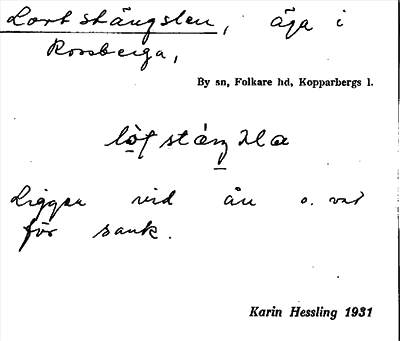 Lortstängslen, äga i
Rossberga,
By sn, Folkare hd, Kopparbergs l.
Ligger vid ån o. var
för sank.
Karin Hessling 1931